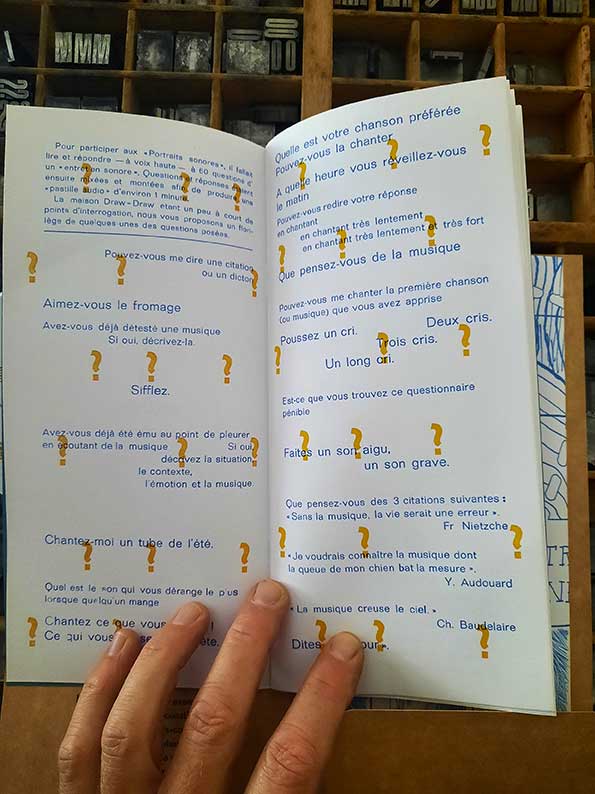 Pour participer aux «Portraits sonores», il fallait
lire et répondre —à voix haute— à 60 questions d'
un «entretien sonore». Questions et réponses étaient
ensuite mixées et montées afin de produire une
«pastille audio» d'environ 1 minute.
La maison Draw-Draw étant un peu à court de
points d'interrogation, nous vous proposons un flori-
lège de quelques unes des questions posées.
Pouvez-vous me dire une citation
ou un dicton
Aimez-vous le fromage
Avez-vous déjà détesté une musique
Si oui, décrivez-la.
Sifflez.
Avez-vous déjà été ému au point de pleurer
en écoutant de la musique Si oui
décrivez la situation,
le contexte,
l'émotion et la musique.
Chantez-moi un tube de l'été.
Quel est le son qui vous dérange le plus
lorsque quelqu'un mange
Chantez ce que vous !
Ce qui vous
Quelle est votre chanson préférée
Pouvez-vous la chanter
A quelle heure vous réveillez-vous
le matin
Pouvez-vous redire votre réponse
en chantant
en chantant très lentement
en chantant très lentement et très fort
Que pensez-vous de la musique
Pouvez-vous me chanter la première chanson
(ou musique) que vous avez apprise
Poussez un cri. Deux cris.
Trois cris.
Un long cri.
Est-ce que vous trouvez ce questionnaire
pénible
Faites un son aigu,
un son grave.
Que pensez-vous des 3 citations suivantes :
«Sans la musique, la vie serait une erreur ».
Fr Nietzche
«Je voudrais connaître la musique dont
la queue de mon chien bat la mesure ».
Y. Audouard
« La musique creuse le ciel. »
Ch. Baudelaire
Dites
MMM